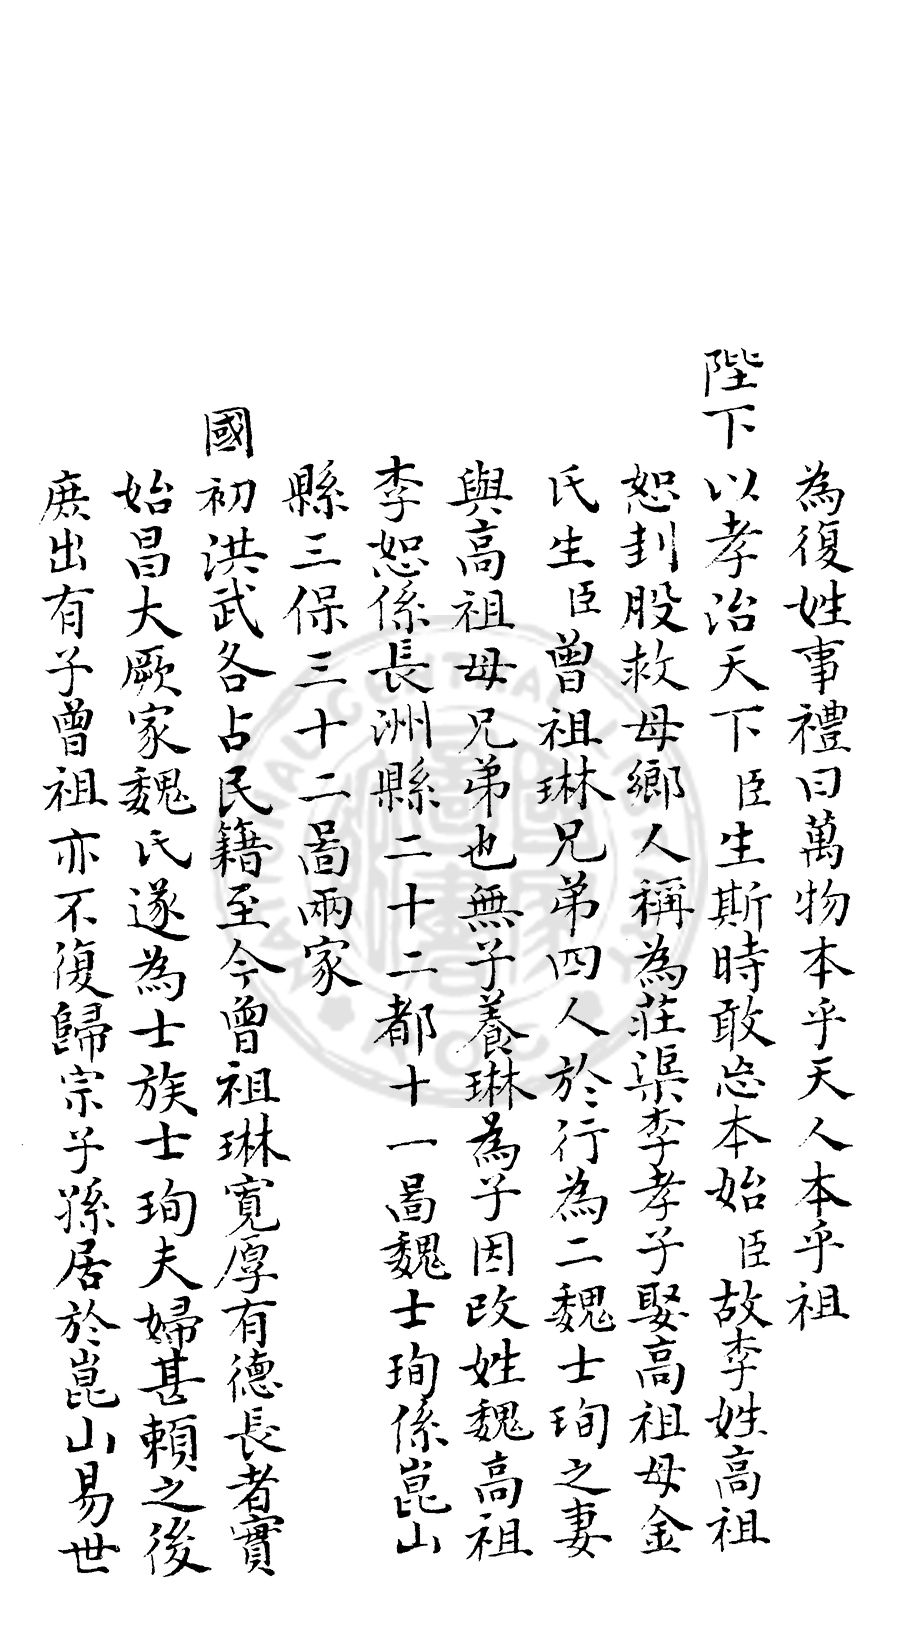 為復姓事禮曰萬物本乎天人本乎祖
陛下以孝治天下臣生斯時敢忘本始臣故李姓高祖
恕刲股救母鄉人稱為莊渠李孝子娶高祖母金
氏生臣曾祖琳兄弟四人於行為二魏士珣之妻
與高祖母兄弟也無子養琳為子因改姓魏高祖
李恕係長洲縣二十二都十一啚魏士珣係崑山
縣三保三十二啚兩家
國初洪武各占民籍至今曾祖琳寬厚有德長者實
始昌大厥家魏氏遂為士族士珣夫婦甚賴之後
庶出有子曾祖亦不復歸宗子孫居於崑山易世